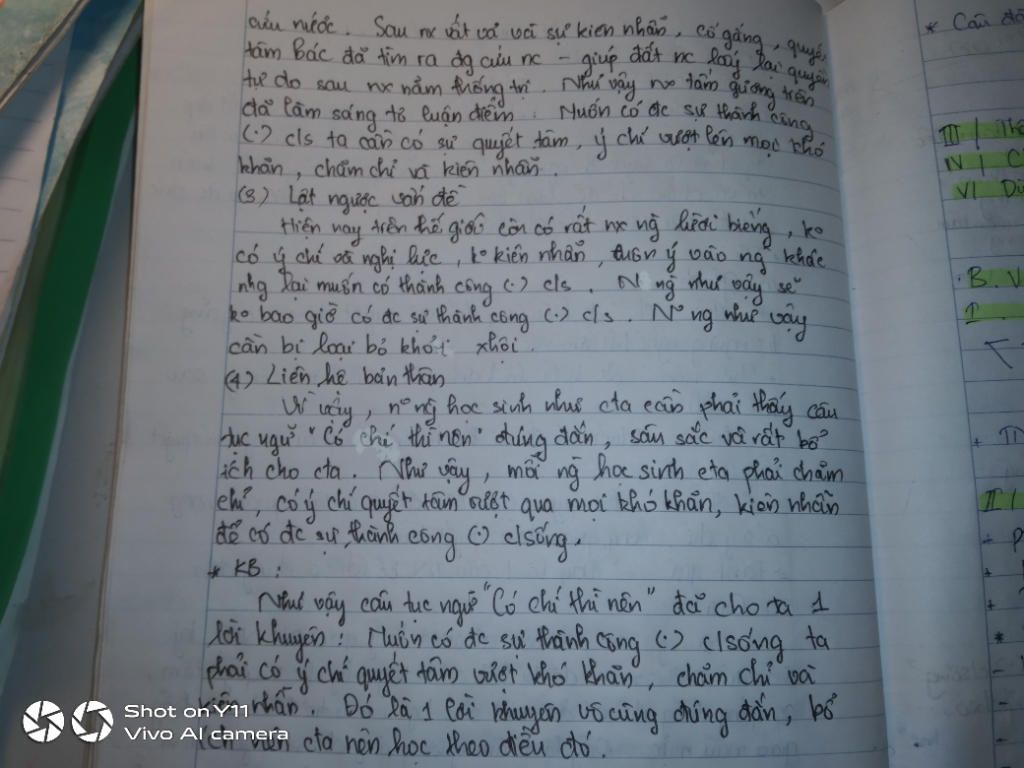 cứu nước. Sau nx vất vả và sự kiên nhẫn, cố gắng, quyết
tâm Bác đã tìm ra đg cứu nc - giúp đất nc lấy lại quyền
tự do sau nx năm thống trị. Như vậy nx tấm gương trên
đã làm sáng tỏ luận điểm: Muốn có đc sự thành công
(.) c/s ta cần có sự quyết tâm, ý chí vượt lên mọi khó
khăn, chăm chỉ và kiên nhẫn.
(3) Lật ngược vấn đề
Hiện nay trên thế giới còn có rất nx ng lười biếng, ko
có ý chí và nghị lực, ko kiên nhẫn, ý vào ng khác
nhg lại muốn có thành công (.) c/s. N ng như vậy sẽ
ko bao giờ có đc sự thành công (.) c/s. No ng như vậy
cần bị loại bỏ khỏi xhội.
(4) Liên hệ bản thân
Vì vậy, no ng học sinh như cta cần phải thấy câu
tục ngữ "Có chí thì nên" đúng đắn, sâu sắc và rất bổ
ích cho cta. Như vậy, mỗi ng học sinh cta phải chăm
chỉ, có ý chí quyết tâm vượt qua mọi khó khăn, kiên nhẫn
để có đc sự thành công (.) c/sống.
* KB:
Như vậy câu tục ngữ "Có chí thì nên" đã cho ta 1
lời khuyên: Muốn có đc sự thành công (.) c/sống ta
phải có ý chí quyết tâm vượt khó khăn, chăm chỉ và
kiên nhẫn. Đó là 1 lời khuyên vô cùng đúng đắn, bổ
ích nên cta nên học theo điều đó.
* Câu
III/
IV/ C
V/
B. V
I/
II
II/
Shot on Y11
Vivo AI camera